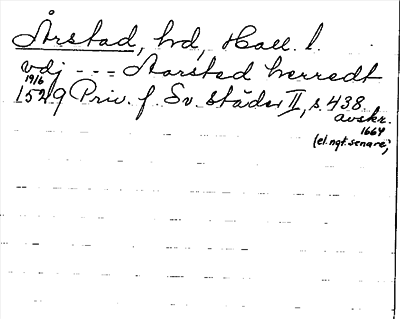 Årstad, hd, Hall. l.
vdj --- Aarsted herredt
19/6
1529 Priv. f. Sv. städer II, s. 438.
avskr.
1664
(el. ngt. senare)